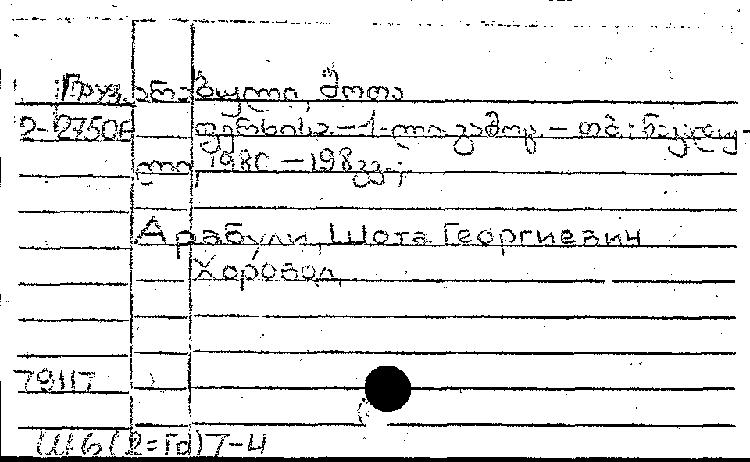 Груз. არაბული, შოთა
2-2750 ფერხისა – 1-ლი გამოც. – თბ.: ნაკადუ-
ლი, 1980 – 198 გვ.;
Арабули, Шота Георгиевич
Хоровод
79117
Ш6(2=Гр)7-4